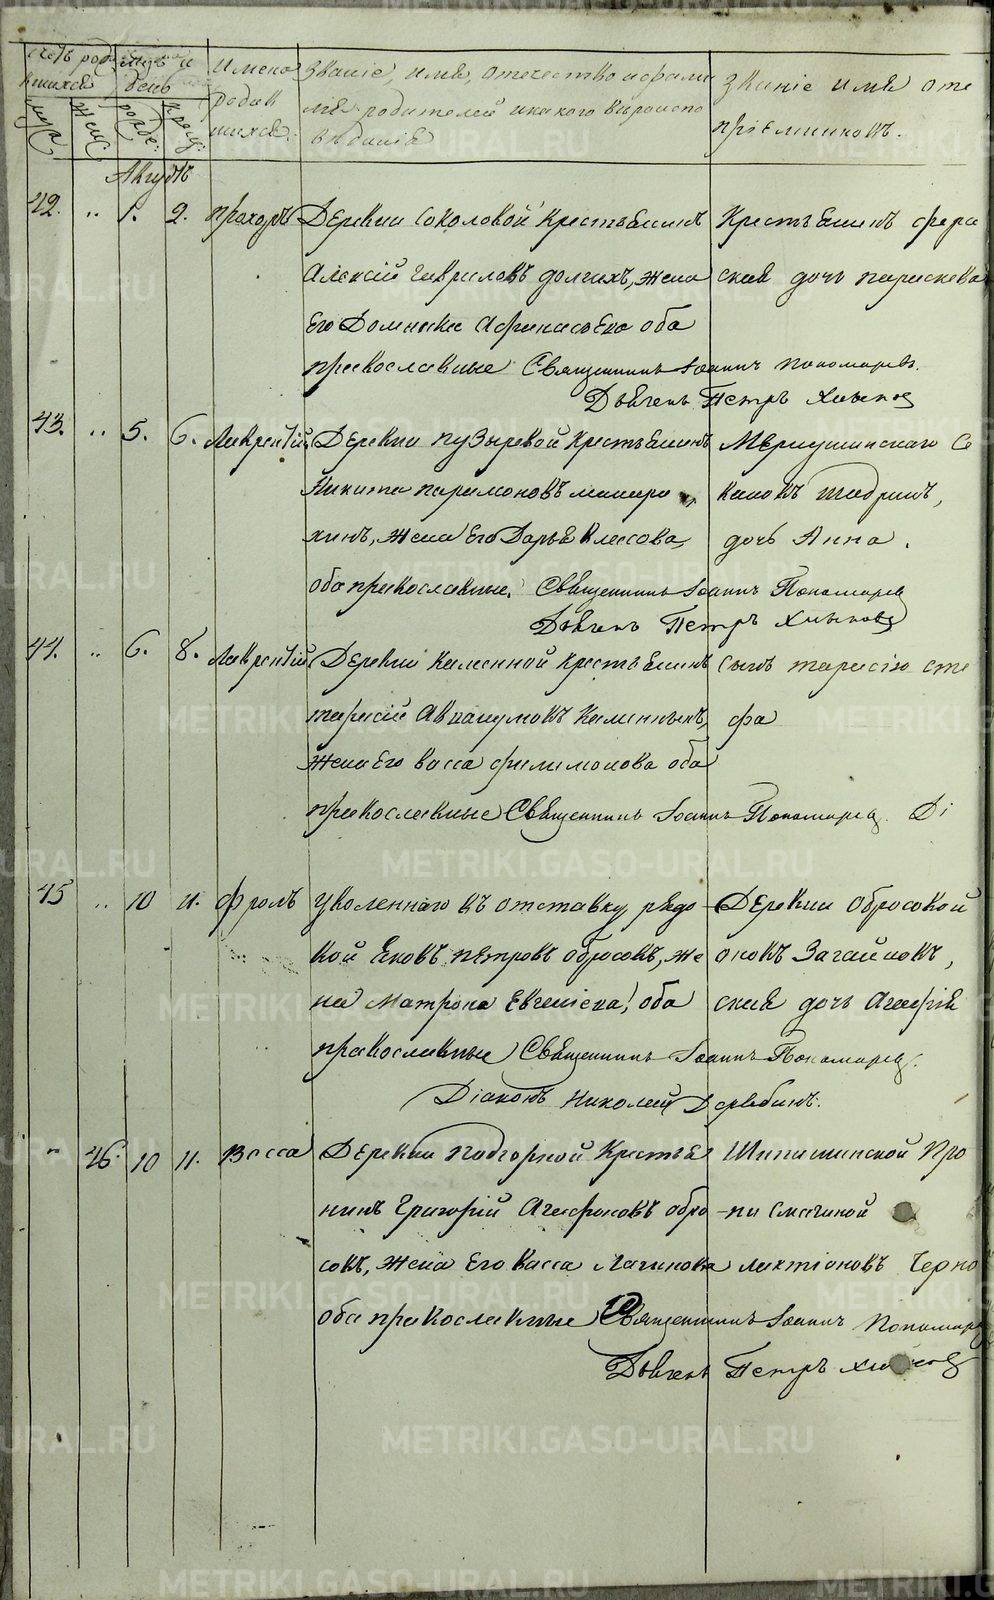 счетъ роди
вшихся
муж:
женс:
мѣс: и
день
рожде:
крещ:
имена
родив
шихся:
званіе, имя, отечество и фами
лія родителей и какого вѣроиспо
вѣданія
званіе имя оте
пріемниковъ.
Августъ
42. „ 1. 2. Прохоръ Деревни Соколовой Крестьянинъ
Алексій Гавриловъ долгихъ, жена
его Домника Афанасьева оба
православные Священникъ Іоаннъ Пономаревъ.
Дьячекъ Петръ
Крестьянинъ
ская дочь параскева
43. „ 5. 6. Лаврентій Деревни пузыревой Крестьянинъ
Никита парамоновъ
жена его Дарья Власова,
оба православные. Священникъ Іоаннъ Пономаревъ
Дьячекъ Петръ
Шадринъ,
дочь Анна.
44. „ 6. 8. Лаврентій Деревни Каменной Крестьянинъ
тарасій Аввакумовъ Каменныхъ,
жена его васса филимонова оба
православные Священникъ Іоаннъ Пономаревъ. Ді
сынъ тарасію сте
фа
45 „ 10 11. Фролъ уволеннаго въ отставку рядо
вой Яковъ петровъ обросовъ, же
на Матрона Евгеніева, оба
православные Священникъ Іоаннъ Пономаревъ.
Діаконъ Николай Дерябинъ.
Деревни обросовой
оновъ Загайновъ,
ская дочь Агафія
„ 46. 10 11. Васса Деревни Подгорной Крестья
нинъ Григорій Агафоновъ обро
совъ, жена его Васса Логинова
оба православные Священникъ Іоаннъ Пономаревъ
Дьячекъ Петръ
Шипишинской Про
пи Смагиной
лактіоновъ Черно
METRIKI.GASO-URAL.RU